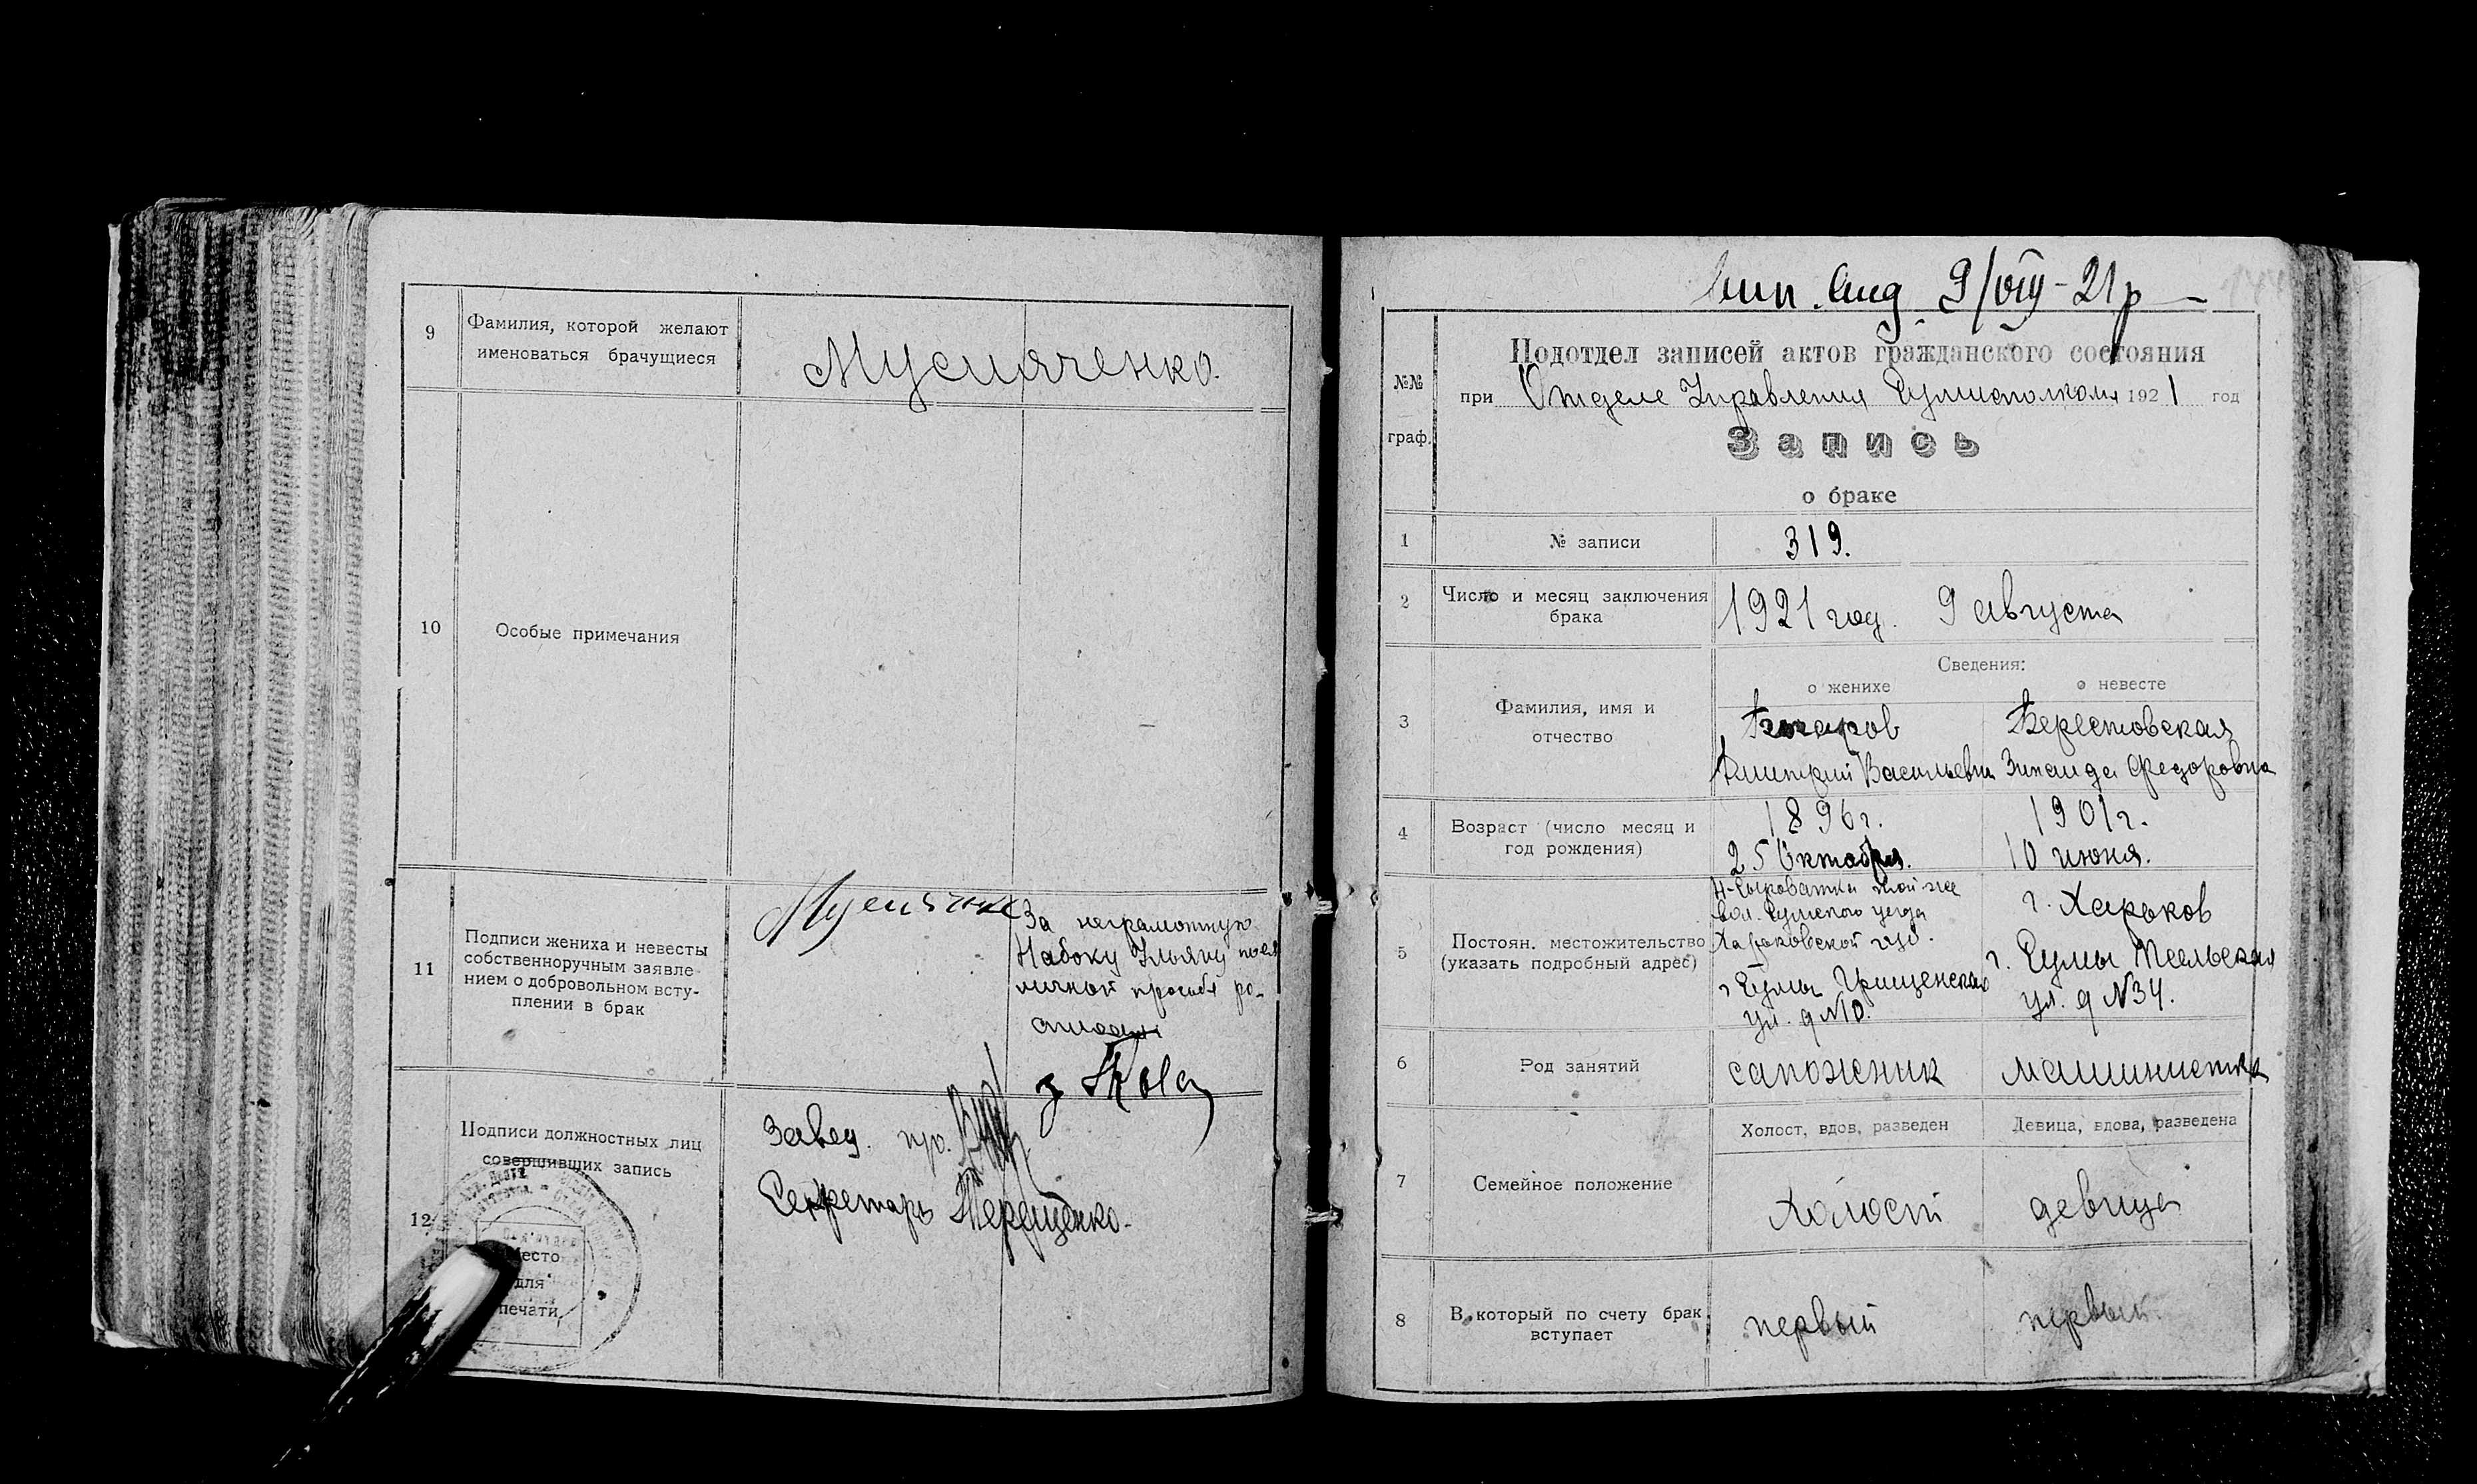 9
Фамилия, которой желают
именоваться брачущиеся
Мусияченко.
10
Особые примечания
11
Подписи жениха и невесты
собственноручным заявле-
нием о добровольном всту-
плении в брак
За неграмотную
Набоку Ульяну по ея
личной просьбе ро-
12
Подписи должностных лиц
совершивших запись
Место
для
печати
Завед. п/о.
Секретарь Терещенко.
9/VIII-21р
Подотдел записей актов гражданского состояния
№№
граф.
при Отделе Управления Сумисполкома 1921 год
Запись
о браке
1
№ записи
319.
2
Число и месяц заключения
брака
1921 год. 9 августа
Сведения:
о женихе
о невесте
3
Фамилия, имя и
отчество
Берестовская
Дмитрий Васильевич
Зинаида Федоровна
4
Возраст (число месяц и
год рождения)
1896г.
25 Октября.
1901г.
10 июня.
5
Постоян. местожительство
(указать подробный адрес)
Н-Сыроватки той-же
вол. Сумского уезда
Харьковской губ.
г Сумы Грищенская
ул. д №10.
г. Харьков
г. Сумы
ул. д №34.
6
Род занятий
сапожник
машинистка
7
Семейное положение
Холост, вдов, разведен
Девица, вдова, разведена
Холост
девица
8
В который по счету брак
вступает
первый
первый